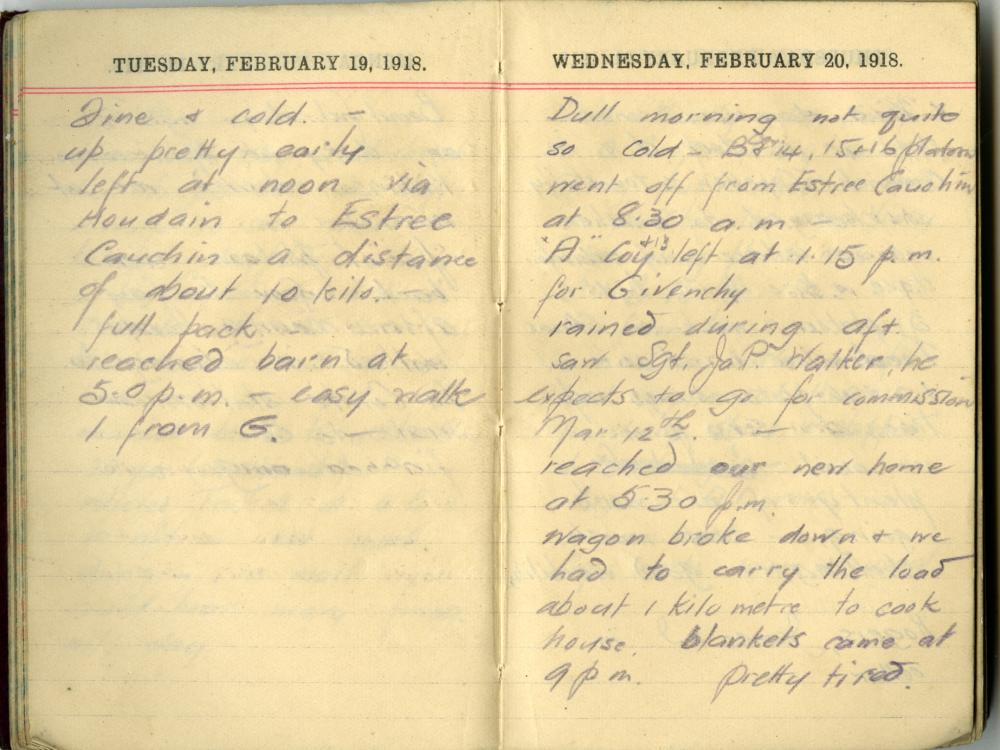 TUESDAY, FEBRUARY 19, 1918.
Fine & cold. —
up pretty early
left at noon via
Houdain to Estree
Cauchin a distance
of about 10 kilo. —
full pack.
reached barn at
5:0 p.m. — easy walk
1 from G. —
WEDNESDAY, FEBRUARY 20, 1918.
Dull morning not quite
so cold – 14, 15 & 16 platoons
went off from Estree Cauchin
at 8.30 a.m —
"A" Coy & 13 left at 1.15 p.m.
for Givenchy
rained during aft
saw Sgt. Walker, he
expects to go for commission
Mar 12th. —
reached our new home
at 5.30 p.m.
wagon broke down & we
had to carry the load
about 1 kilo metre to cook
house. blankets came at
9 p m. pretty tired.